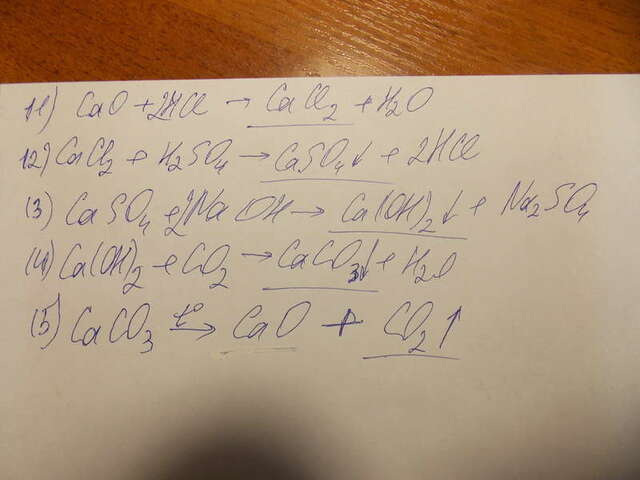 (1) CaO + 2HCl → CaCl₂ + H₂O
(2) CaCl₂ + H₂SO₄ → CaSO₄↓ + 2HCl
(3) CaSO₄ + 2NaOH → Ca(OH)₂↓ + Na₂SO₄
(4) Ca(OH)₂ + CO₂ → CaCO₃↓ + H₂O
(5) CaCO₃ t° → CaO + CO₂↑